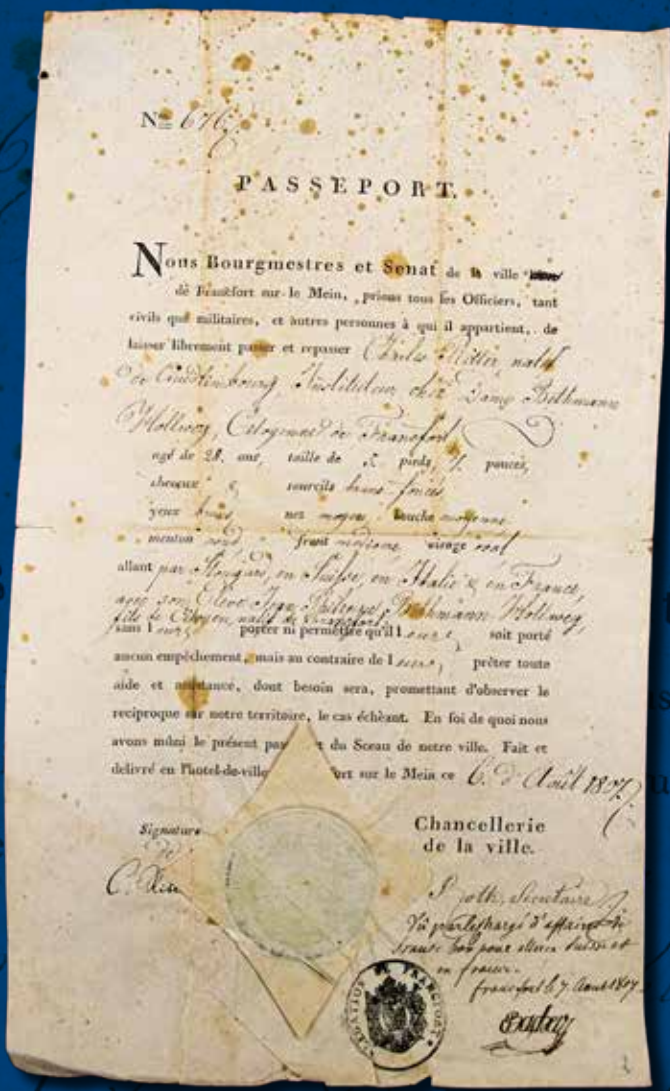 No 676
PASSEPORT.
Nous Bourgmestres et Senat de la ville
de Francfort sur le Mein, prions tous les Officiers, tant
civils que militaires, et autres personnes à qui il appartient, de
laisser librement passer et repasser Charles Ritter, natif
de Quedlinbourg, Instituteur chez Dame Bethmann
Hollweg, Citoyenne de Francfort
agé de 28. ans, taille de pieds, pouces,
cheveux sourcils bruns foncés
yeux bruns nez moyen bouche moyenne
menton rond front médiocre visage oval
allant par en Suisse, en Italie & en France,
avec son Elève Jean Bethmann Hollweg,
fils de Citoyen, natif de Francfort
sans l porter ni permettre qu'il l soit porté
aucun empêchement, mais au contraire de l prêter toute
aide et assistance, dont besoin sera, promettant d'observer le
reciproque sur notre territoire, le cas échèant. En foi de quoi nous
avons muni le présent pas t du Sceau de notre ville. Fait et
delivré en l'hotel-de-ville fort sur le Mein ce 6. d'Août 1807.
Signature
de
C. Ri
Chancellerie
de la ville.
Secretaire
Vû par le chargé d'affaires de
france bon pour aller en Suisse et
en france.
francfort le 7 Aout 1807
LEGATION DE FRANCFORT